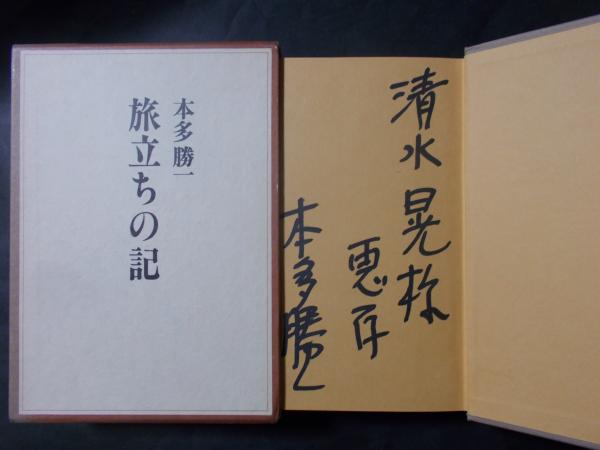 本多勝一
旅立ちの記
清水晃様
恵存
本多勝一